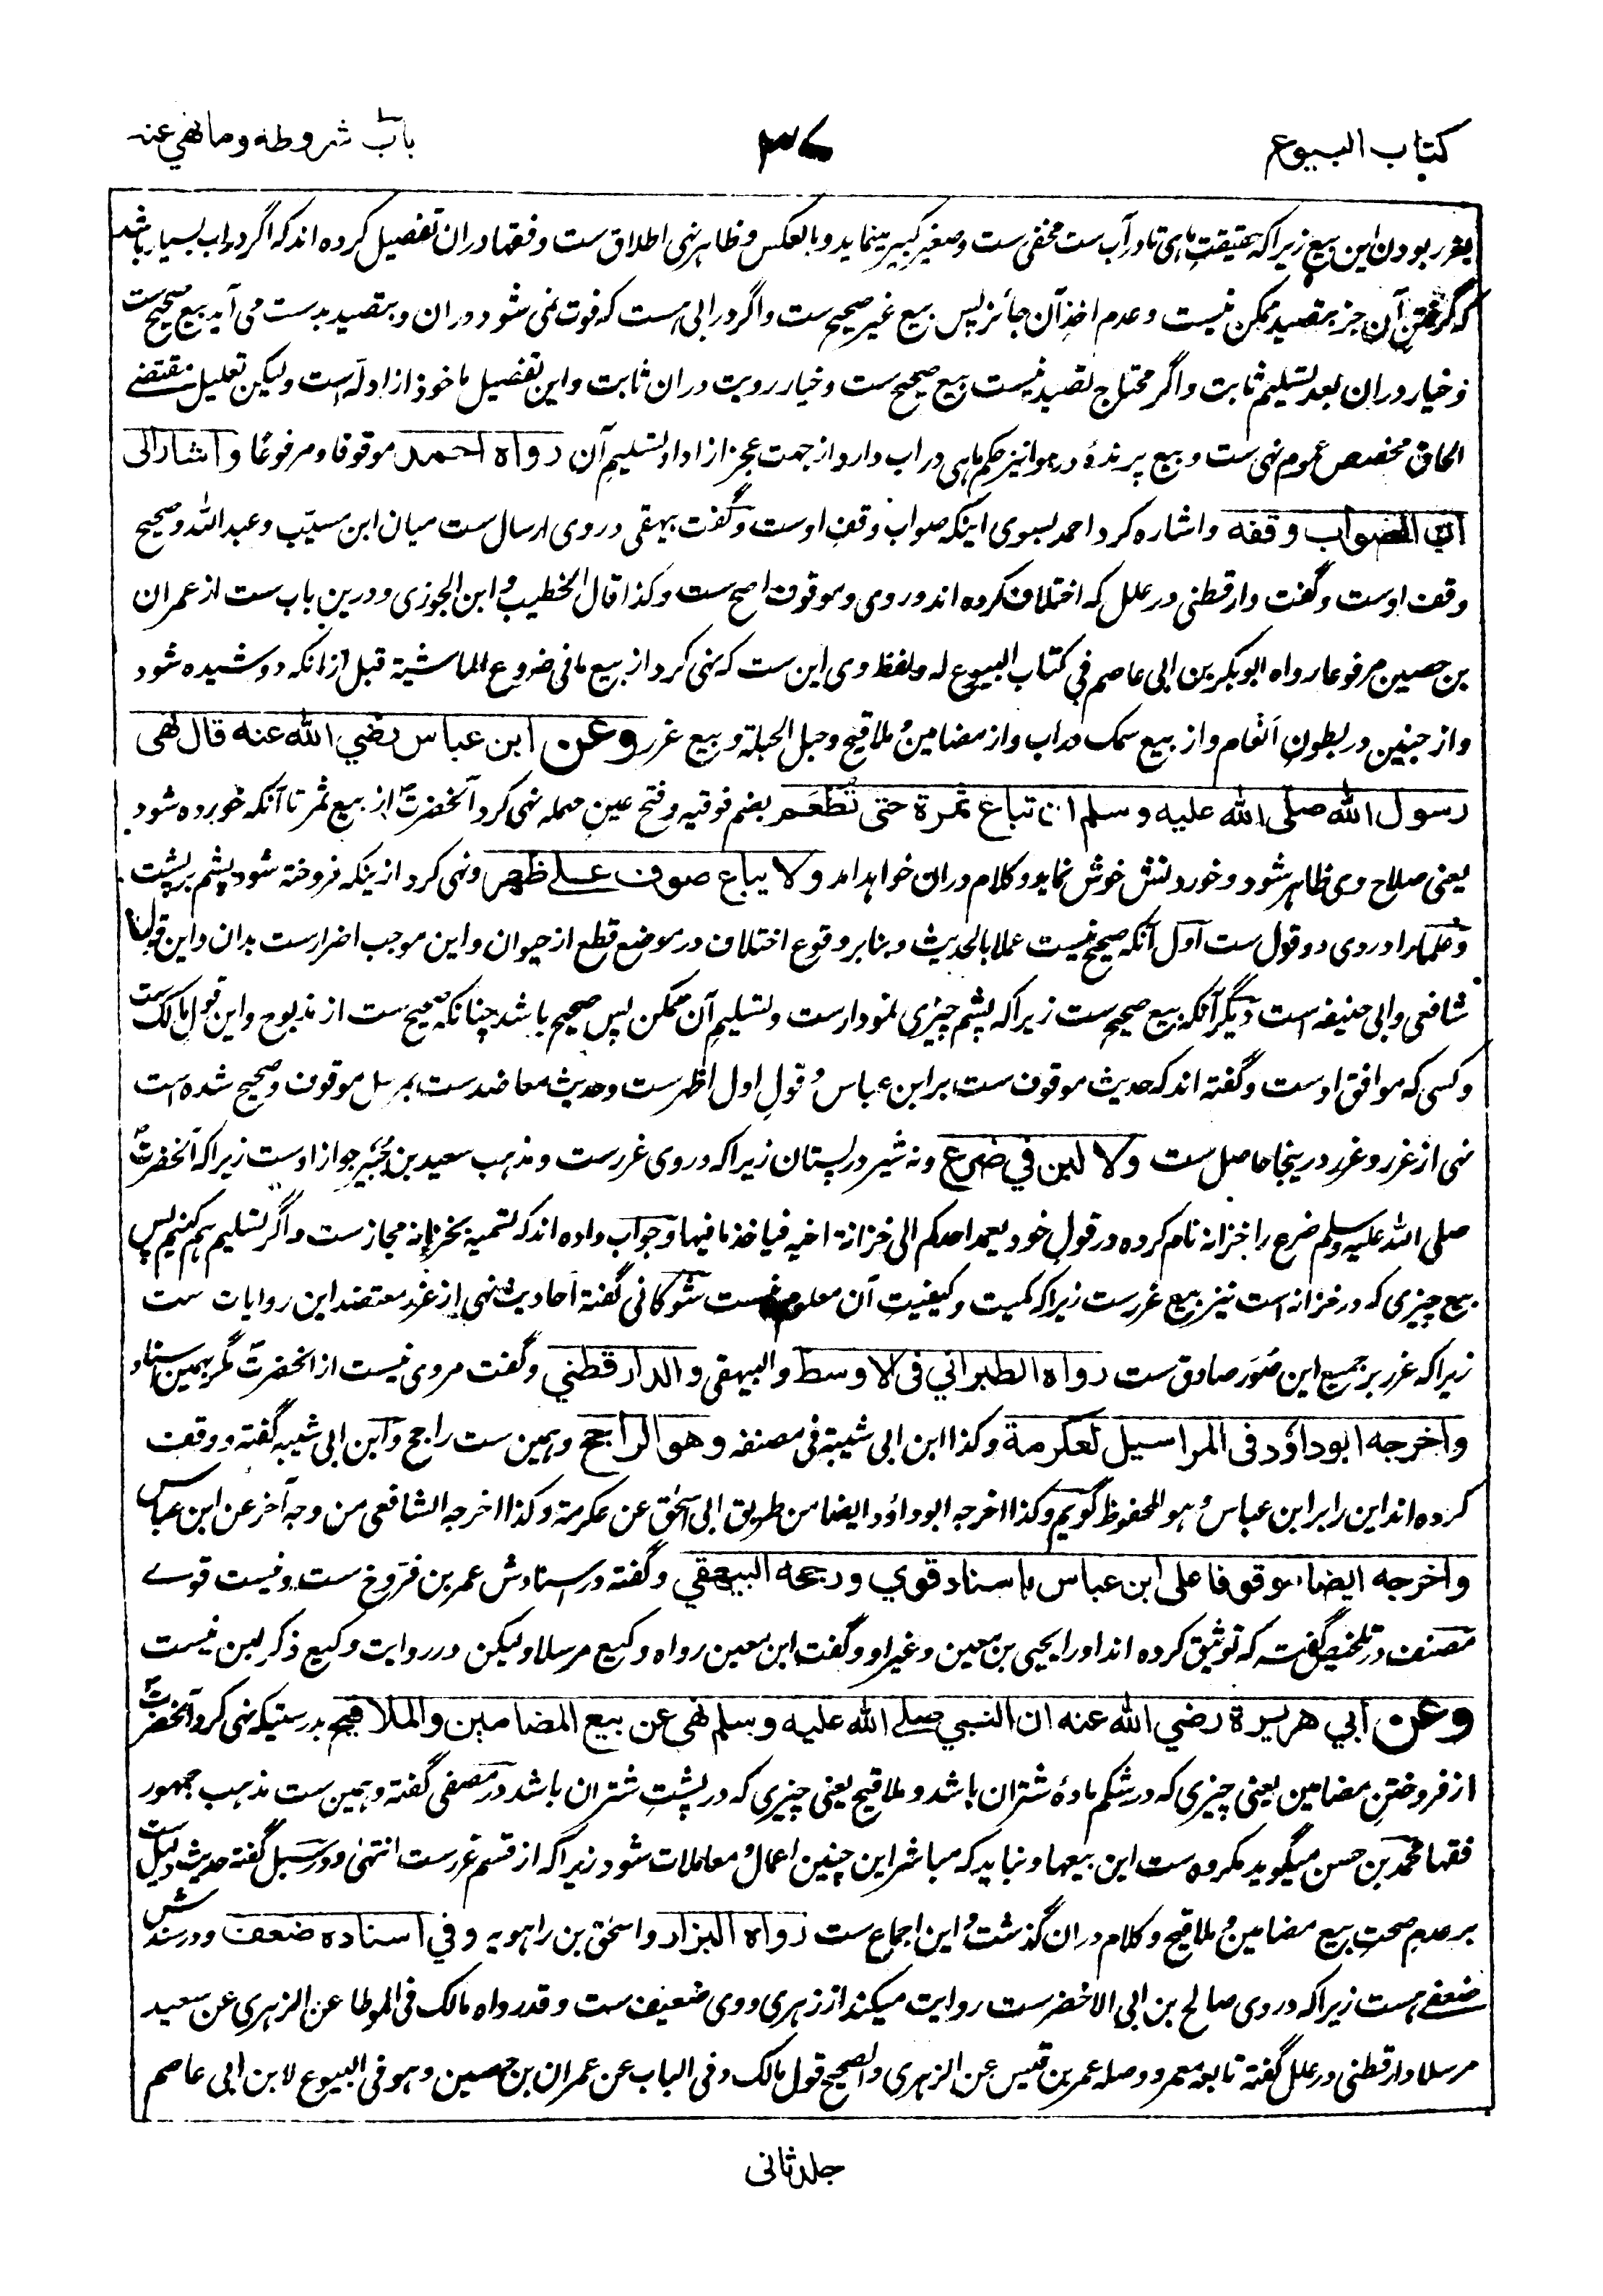 کتاب البیوع
۳۷
باب شروطه وما نهی عنه
بغرر بودن این بیع زیراکه حقیقت ماهی تا در آب ست مخفی ست و صغیر کبیر مینماید و بالعکس و ظاهر نهی اطلاق ست و فقها دران تفصیل کرده اند که اگر دراب بسیار باشد
که گرفتن آن جز بتصید ممکن نیست و عدم اخذ آن جائز پس بیع غیر صحیح ست و اگر درابی ست که فوت نمی شود دران و بتصید بدست می آید بیع صحیح ست
و خیار دران بعد تسلیم ثابت و اگر محتاج تصید نیست بیع صحیح ست و خیار رویت دران ثابت و این تفصیل ماخوذ از ادله است ولیکن تعلیل مقتضے
الحاق مخصص عموم نهی ست و بیع پرندهٔ در هوا نیز حکم ماهی در اب دارد از جهت عجز از ادا و تسلیم آن رواه احمد موقوفا و مرفوعا واشار الی
ان الصواب وقفه واشاره کرد احمد بسوی اینکه صواب وقف اوست وگفت بیهقی در وی ارسال ست میان ابن مسیّب و عبد الله و صحیح
وقف اوست وگفت دارقطنی در علل که اختلاف کرده اند در وی و موقوف اصح ست وکذا قال الخطیب و ابن الجوزی و درین باب ست از عمران
بن حصین مرفوعا رواه ابوبکر بن ابی عاصم فی کتاب البیوع له ولفظ وی این ست که نهی کرد از بیع ما فی ضروع الماشیة قبل ازانکه دوشیده شود
واز جنین در بطون انعام و از بیع سمک دراب و از مضامین و ملاقیح وحبل الحبلة و بیع غرر وعن ابن عباس رضي الله عنه قال نهی
رسول الله صلی الله علیه وسلم ان تباع ثمرة حتی تطعم بضم فوقیه و فتح عین مهمله نهی کرد آنحضرت از بیع ثمر تا آنکه خورده شود
یعنی صلاح وی ظاهر شود و خوردنش خوش نماید و کلام دران خواهد امد ولا یباع صوف علی ظهر و نهی کرد ازینکه فروخته شود پشم بر پشت
و علما را در وی دو قول ست اول آنکه صحیح نیست عملا بالحدیث و بنا بر وقوع اختلاف در موضع قطع از حیوان و این موجب اضرارست بدان و این قول
شافعی وابی حنیفه است دیگر آنکه بیع صحیح ست زیراکه پشم چیزی نمودارست و تسلیم آن ممکن پس صحیح باشد چنانکه صحیح ست از مذبوح و این قول مالک ست
و کسی که موافق اوست و گفته اند که حدیث موقوف ست بر ابن عباس و قول اول اظهرست و حدیث معاضدست بمرسل موقوف و صحیح شده است
نهی از غرر و غرر درینجا حاصل ست ولا لبن في ضرع و نه شیر در پستان زیراکه در وی غررست و مذهب سعید بن جبیر جواز اوست زیراکه آنحضرت
صلی الله علیه وسلم ضرع را خزانه نام کرده در قول خود یعمد احدکم الی خزانة اخیه فیاخذ ما فیها و جواب داده اند که تسمیه بخزانه مجازست و اگر تسلیم هم کنیم پس
بیع چیزی که در خزانه است نیز بیع غررست زیراکه کمیت و کیفیت آن معلوم نیست شوکانی گفته احادیث نهی از غرر معتضد این روایات ست
زیراکه غرر بر جمیع این صُوَر صادق ست رواه الطبراني فی الاوسط والبیهقی والدارقطني وگفت مروی نیست از انحضرت مگر بهمین اسناد
واخرجه ابوداؤد فی المراسیل لعکرمة وکذا ابن ابی شیبة فی مصنفه وهو الراجح وهمین ست راجح وابن ابی شیبه گفته و وقف
کرده اند این را بر ابن عباس و هو المحفوظ گویم وکذا اخرجه ابوداؤد ایضا من طریق ابی اسحٰق عن عکرمة وکذا اخرجه الشافعی من وجه آخر عن ابن عباس
واخرجه ایضا موقوفا علی ابن عباس باسناد قوي ورجحه البیهقي و گفته در اسنادش عمر بن فروخ ست و نیست قوے
مصنف در تلخیص گفته که توثیق کرده اند او را یحیی بن معین و غیر او و گفت ابن معین رواه وکیع مرسلا ولیکن در روایت وکیع ذکر لبن نیست
وعن ابي هریرة رضي الله عنه ان النبي صلے الله علیه وسلم نهی عن بیع المضامین والملاقیح بدرستیکه نهی کرد آنحضرت
از فروختن مضامین یعنی چیزی که در شکم مادهٔ شتران باشد و ملاقیح یعنی چیزی که در پشت شتران باشد در مصفی گفته و همین ست مذهب جمهور
فقها محمد بن حسن میگوید مکروه ست این بیعها و نباید که مباشر این چنین اعمال و معاملات شود زیراکه از قسم غررست انتهی و در سبل گفته حدیث دلیل ست
بر عدم صحت بیع مضامین و ملاقیح و کلام دران گذشت و این اجماع ست رواه البزار واسحٰق بن راهویه وفي اسناده ضعف و در سندش
ضعفے هست زیراکه در وی صالح بن ابی الاخضرست روایت میکند از زهری و وی ضعیف ست وقد رواه مالک فی الموطا عن الزهری عن سعید
مرسلا دارقطنی در علل گفته تابعه معمر و وصله عمر بن قیس عن الزهری والصحیح قول مالک وفی الباب عن عمران بن حصین وهو فی البیوع لابن ابی عاصم
جلد ثانی